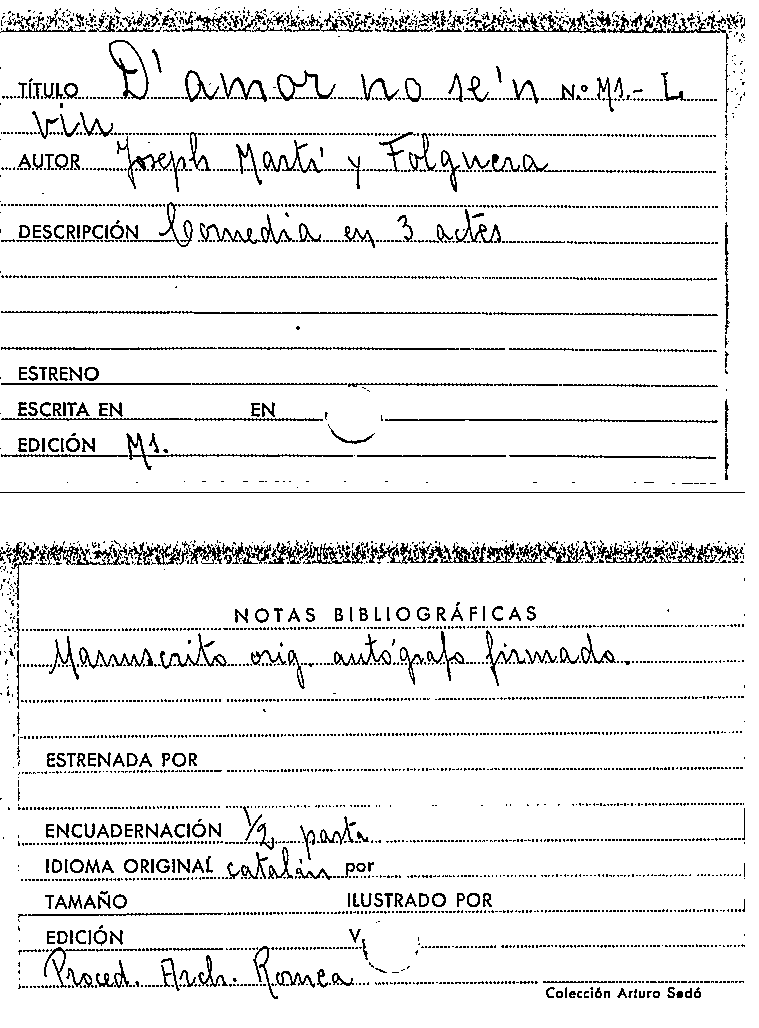 TÍTULO D' amor no se'n N.º Ms.- L
vin
AUTOR Joseph Martí y Folguera
DESCRIPCIÓN Comedia en 3 actes
ESTRENO
ESCRITA EN EN
EDICIÓN Ms.
NOTAS BIBLIOGRÁFICAS
Manuscrito orig. autógrafo firmado.
ESTRENADA POR
ENCUADERNACIÓN 1/2 pasta
IDIOMA ORIGINAL catalán por
TAMAÑO ILUSTRADO POR
EDICIÓN V
Proced. Arch. Romea
Colección Arturo Sedó